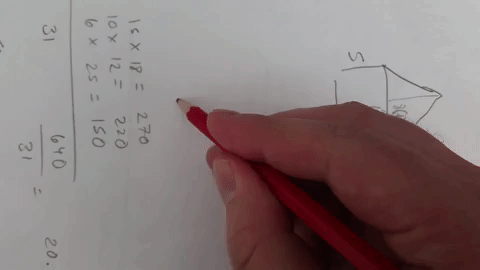 5
15 x 18 = 270
10 x 12 = 220
6 x 25 = 150
31 640
31 = 20.